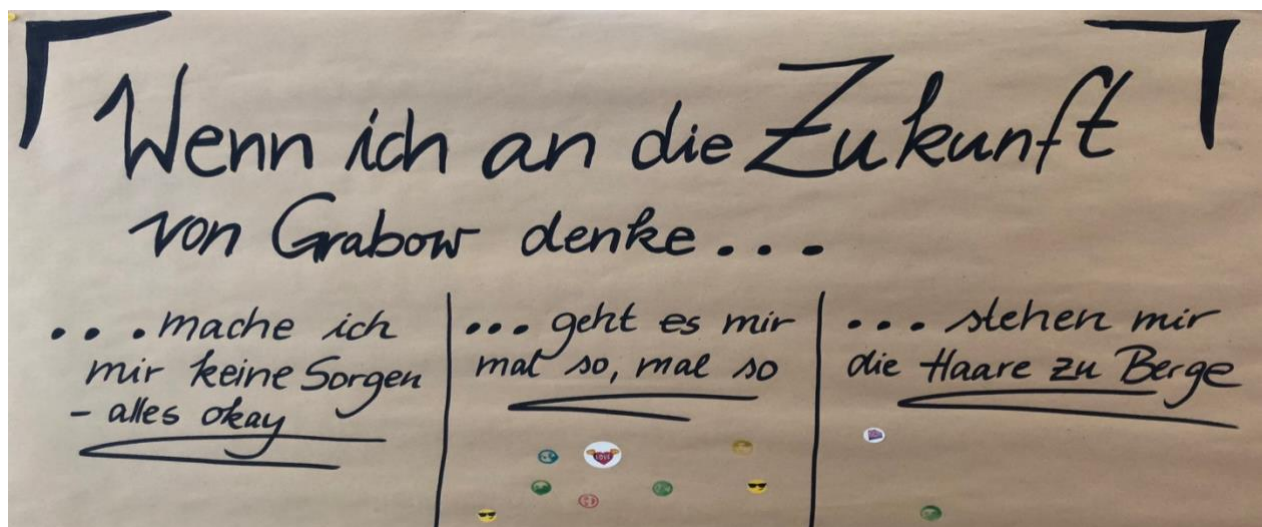 Wenn ich an die Zukunft
von Grabow denke...
...mache ich
mir keine Sorgen
- alles okay
...geht es mir
mal so, mal so
LOVE
...stehen mir
die Haare zu Berge